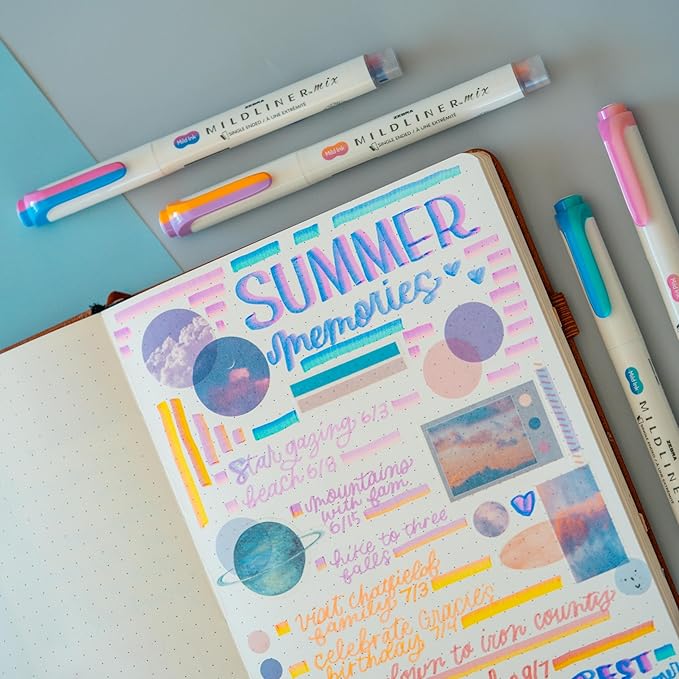 Mild Ink MILDLINER mix
ZEBRA
SINGLE ENDED / À UNE EXTRÉMITÉ
Mild Ink MILDLINER mix
ZEBRA
SINGLE ENDED / À UNE EXTRÉMITÉ
Mild Ink
ZEBRA
MILDL
SUMMER
memories
star gazing 6/3
beach 6/8
mountains
with fam
6/15
hike to three
falls
visit chatfield
family 7/3
celebrate Gracies
birthday 7/4
down to iron county
9/7
BEST